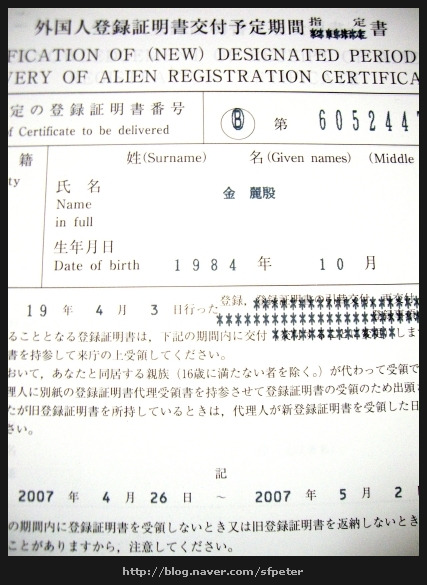 外国人登録証明書交付予定期間指定書
FICATION OF (NEW) DESIGNATED PERIOD
VERY OF ALIEN REGISTRATION CERTIFICA
定の登録証明書番号
of Certificate to be delivered
Ⓑ 第 6052447
籍
ty
姓(Surname) 名(Given names) (Middle
氏名
Name
in full
金 麗殷
生年月日
Date of birth
1984 年 10 月
19 年 4 月 3 日行った 登録,
ることとなる登録証明書は、下記の期間内に交付
書を持参して来庁の上受領してください。
おいて、あなたと同居する親族(16歳に満たない者を除く。)が代わって受領で
理人に別紙の登録証明書代理受領書を持参させて登録証明書の受領のため出頭
たが旧登録証明書を所持しているときは、代理人が新登録証明書を受領した日
さい。
記
2007 年 4 月 26 日 ~ 2007 年 5 月 2
の期間内に登録証明書を受領しないとき又は旧登録証明書を返納しないとき
ことがありますから、注意してください。
http://blog.naver.com/sfpeter